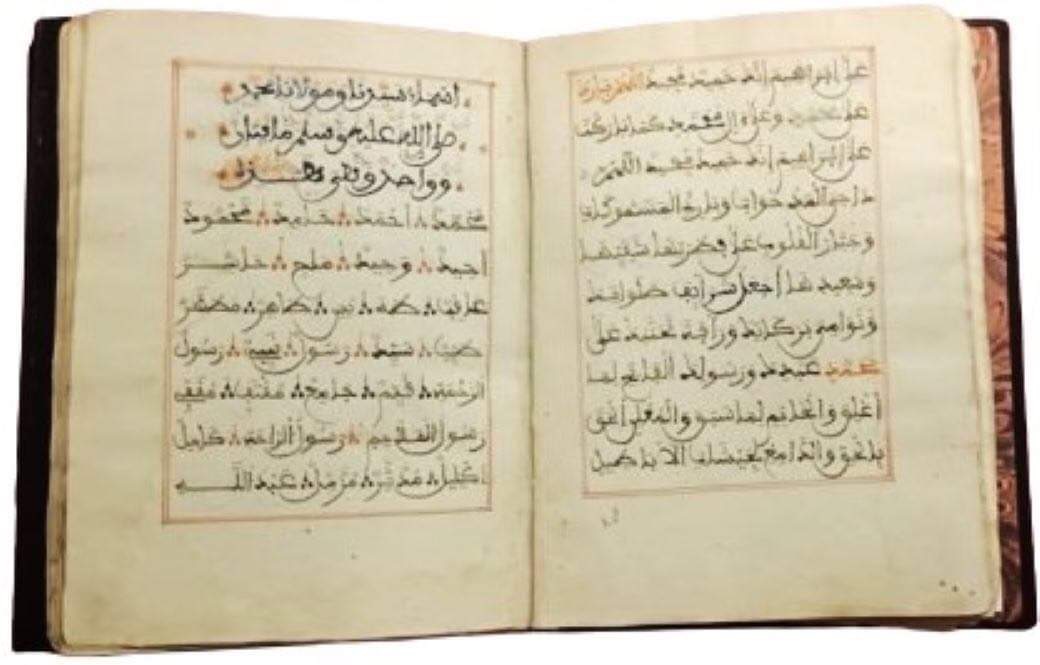 على إبراهيم إنك حميد مجيد اللهم بارك
على محمد وعلى آل محمد كما باركت
على إبراهيم إنك حميد مجيد اللهم
داحي المدحوات وبارئ المسموكات
وجبار القلوب على فطرتها شقيها
وسعيدها اجعل شرائف صلواتك
ونوامي بركاتك ورأفة تحننك على
محمد عبدك ورسولك الفاتح لما
أغلق والخاتم لما سبق والمعلن الحق
بالحق والدامغ لجيشات الأباطيل
أسماء سيدنا ومولانا محمد
صلى الله عليه وسلم مائتان
وواحد وهي هذه
محمد أحمد حامد محمود
أحيد وحيد ماح حاشر
عاقب طه يس طاهر مطهر
طيب سيد رسول نبي رسول
الرحمة قيم جامع مقتف مقفى
رسول الملاحم رسول الراحة كامل
إكليل مدثر مزمل عبد الله